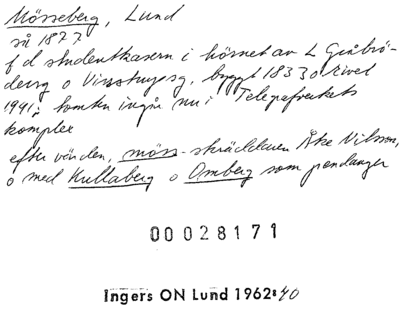 Mösseberg, Lund
så 1877
f d studentkasern i hörnet av L Gråbrö-
dersg o Vinstugug, byggt 1833 o rivet
1941; tomten ingår nu i Telegrafverkets
komplex
efter värden, möss-skräddaren Åke Nilsson,
o med Kullaberg o Omberg som pendanger
00028171
Ingers ON Lund 1962:40